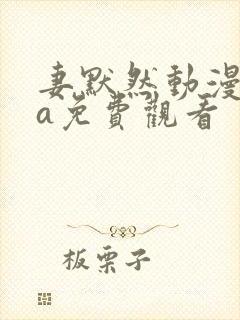 妻默然動漫
a免費觀看
板栗子